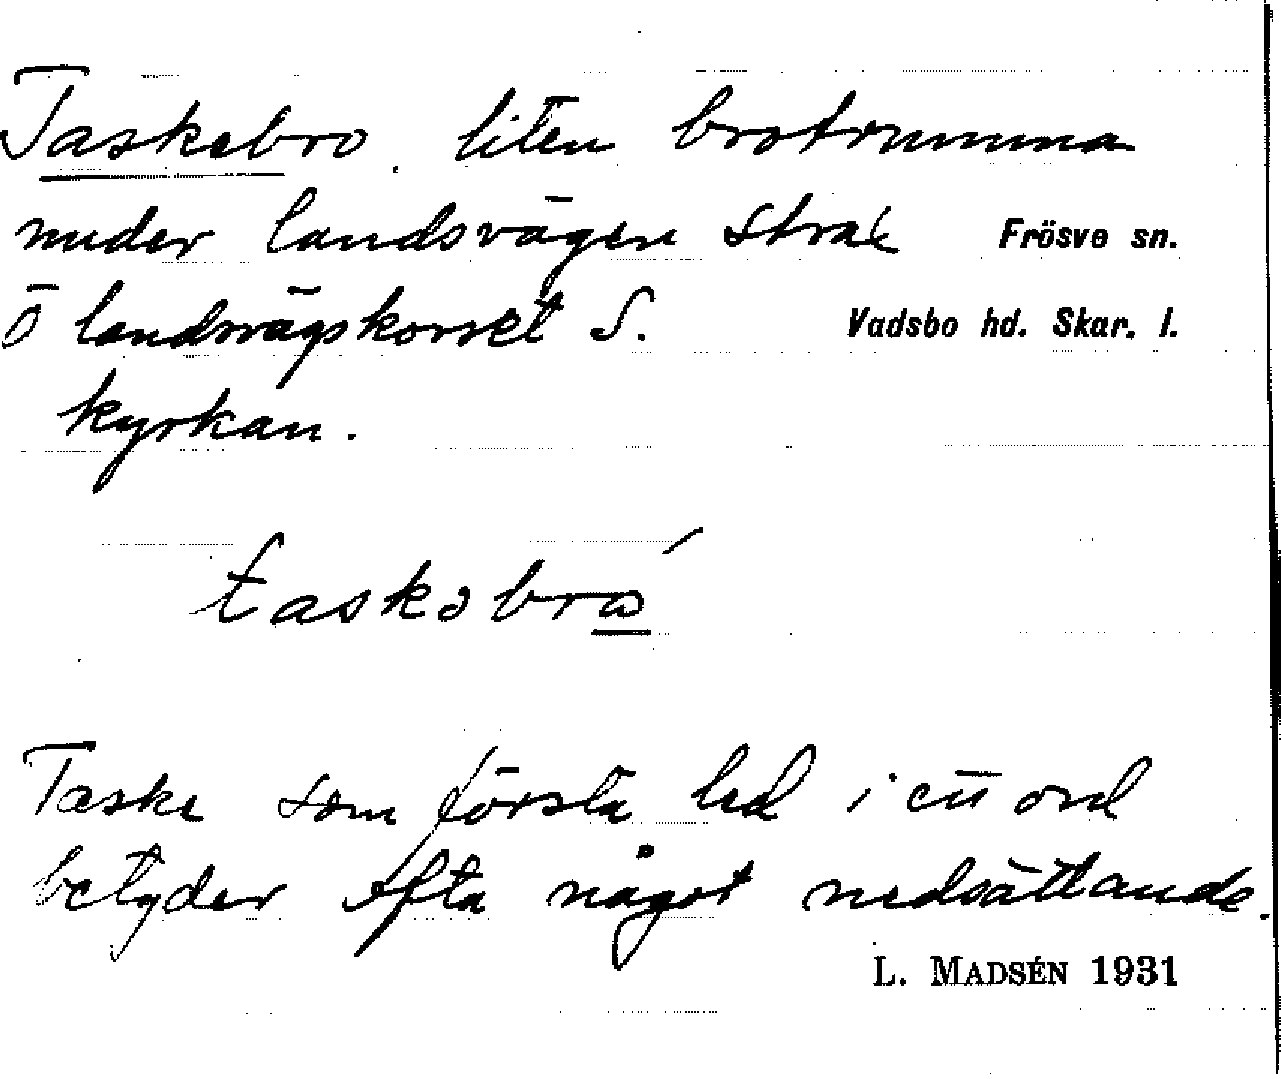 Taskebro. liten brotrumma
under landsvägen strax Frösve sn.
Ö landsvägskorset S. Vadsbo hd. Skar. l.
kyrkan.
taskəbro´
Taske som första led i ett ord
betyder ofta något nedsättande.
L. MADSÉN 1931